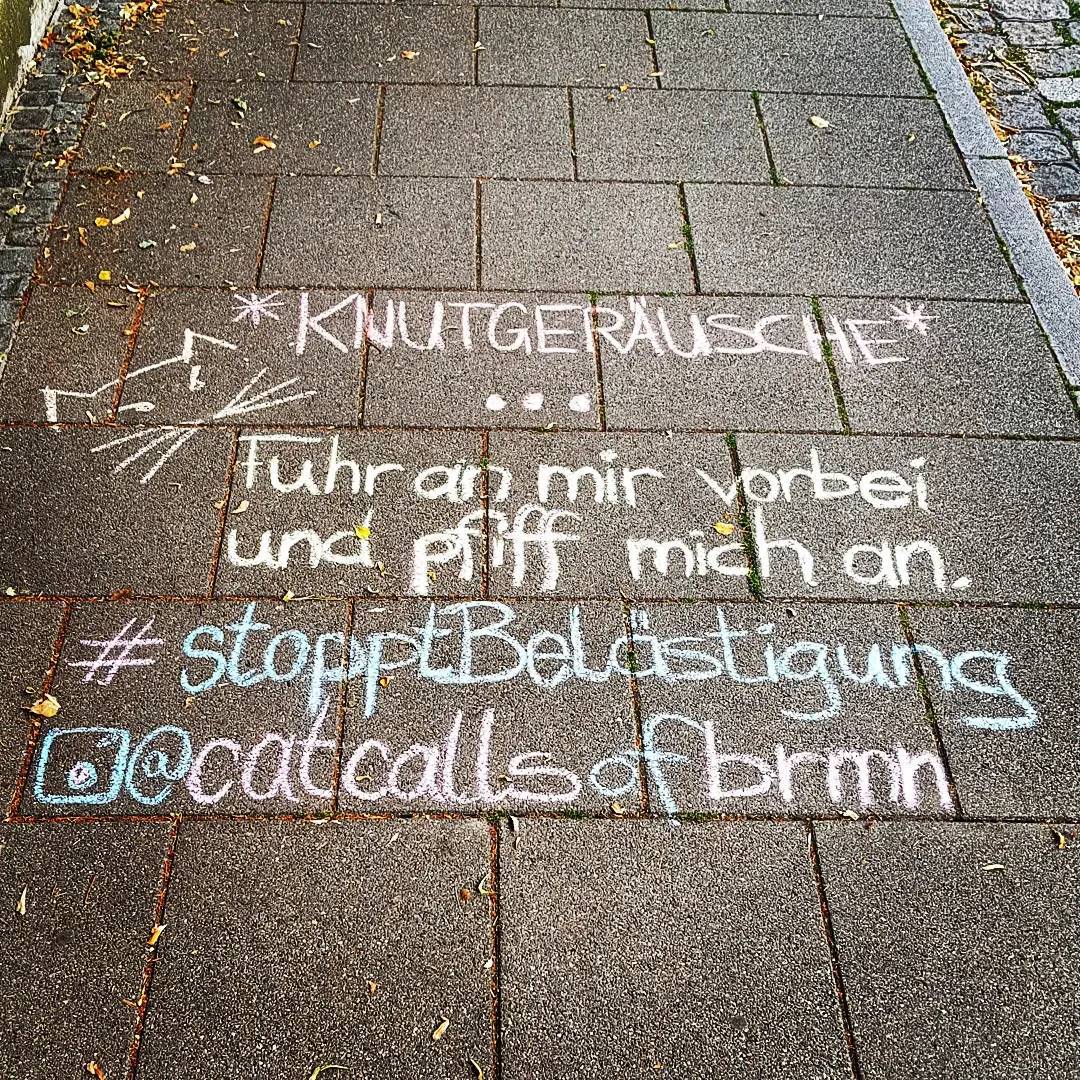 *KNUTGERÄUSCHE*
...
Fuhr an mir vorbei
und pfiff mich an.
#stopptBelästigung
@catcallsofbrmn